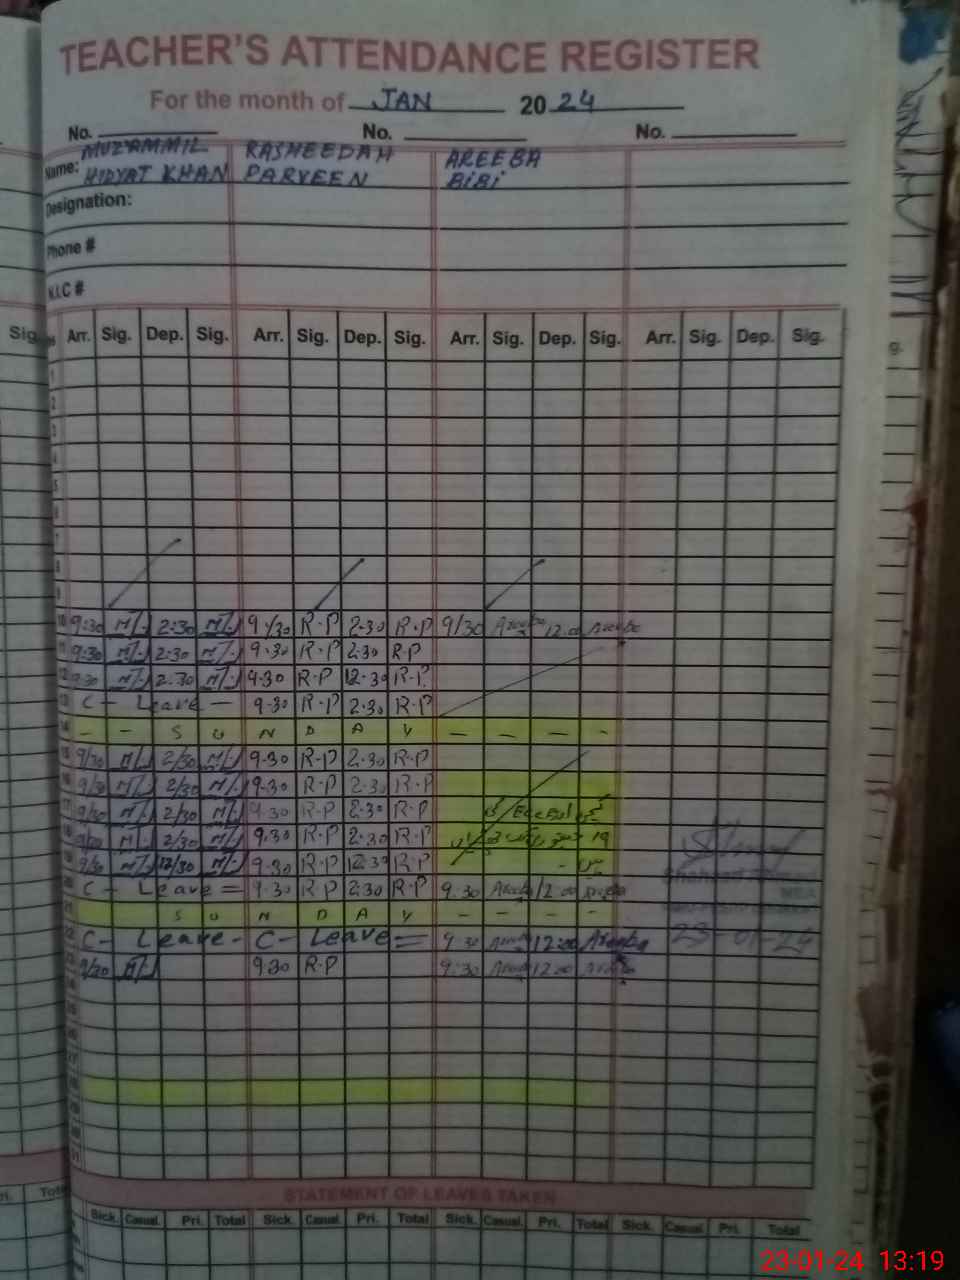 TEACHER'S ATTENDANCE REGISTER
For the month of JAN 2024
No. No. No.
Name: MUZAMMIL HIDYAT KHAN RASHEEDAH PARVEEN AREEBA BIBI
Designation:
Phone #
N.I.C #
Sig. Arr. Sig. Dep. Sig. Arr. Sig. Dep. Sig. Arr. Sig. Dep. Sig. Arr. Sig. Dep. Sig.
1
2
3
4
5
6
7
8
9
10 9:30 2:30 9/30 R.P 2:30 R.P 9/30 Areeba 12.00 Areeba
11 9:30 2:30 9.30 R.P 2:30 R.P
12 9:30 2:30 9.30 R.P 12.30 R.P
13 C - Leave - 9.30 R.P 2:30 R.P
14 - - S U N D A Y - - - -
15 9/30 2/30 9.30 R.P 2:30 R.P
16 9/30 2/30 9.30 R.P 2:30 R.P
17 9/30 2/30 9.30 R.P 2:30 R.P
18 9/30 2/30 9.30 R.P 2:30 R.P 19
19 9/30 12/30 9.30 R.P 12:30 R.P
20 C - Leave = 9.30 R.P 2:30 R.P 9.30 Areeba 12.00 Areeba
21 S U N D A Y - - - -
22 C - Leave - C - Leave = 9.30 Areeba 12:00 Areeba
23 9/30 9.30 R.P 9:30 Areeba 12.00 Areeba
23-01-24
24
25
26
27
28
29
30
31
STATEMENT OF LEAVES TAKEN
Pri. Total Sick. Casual. Pri. Total Sick. Casual. Pri. Total Sick. Casual. Pri. Total Sick. Casual. Pri. Total
23-01-24 13:19